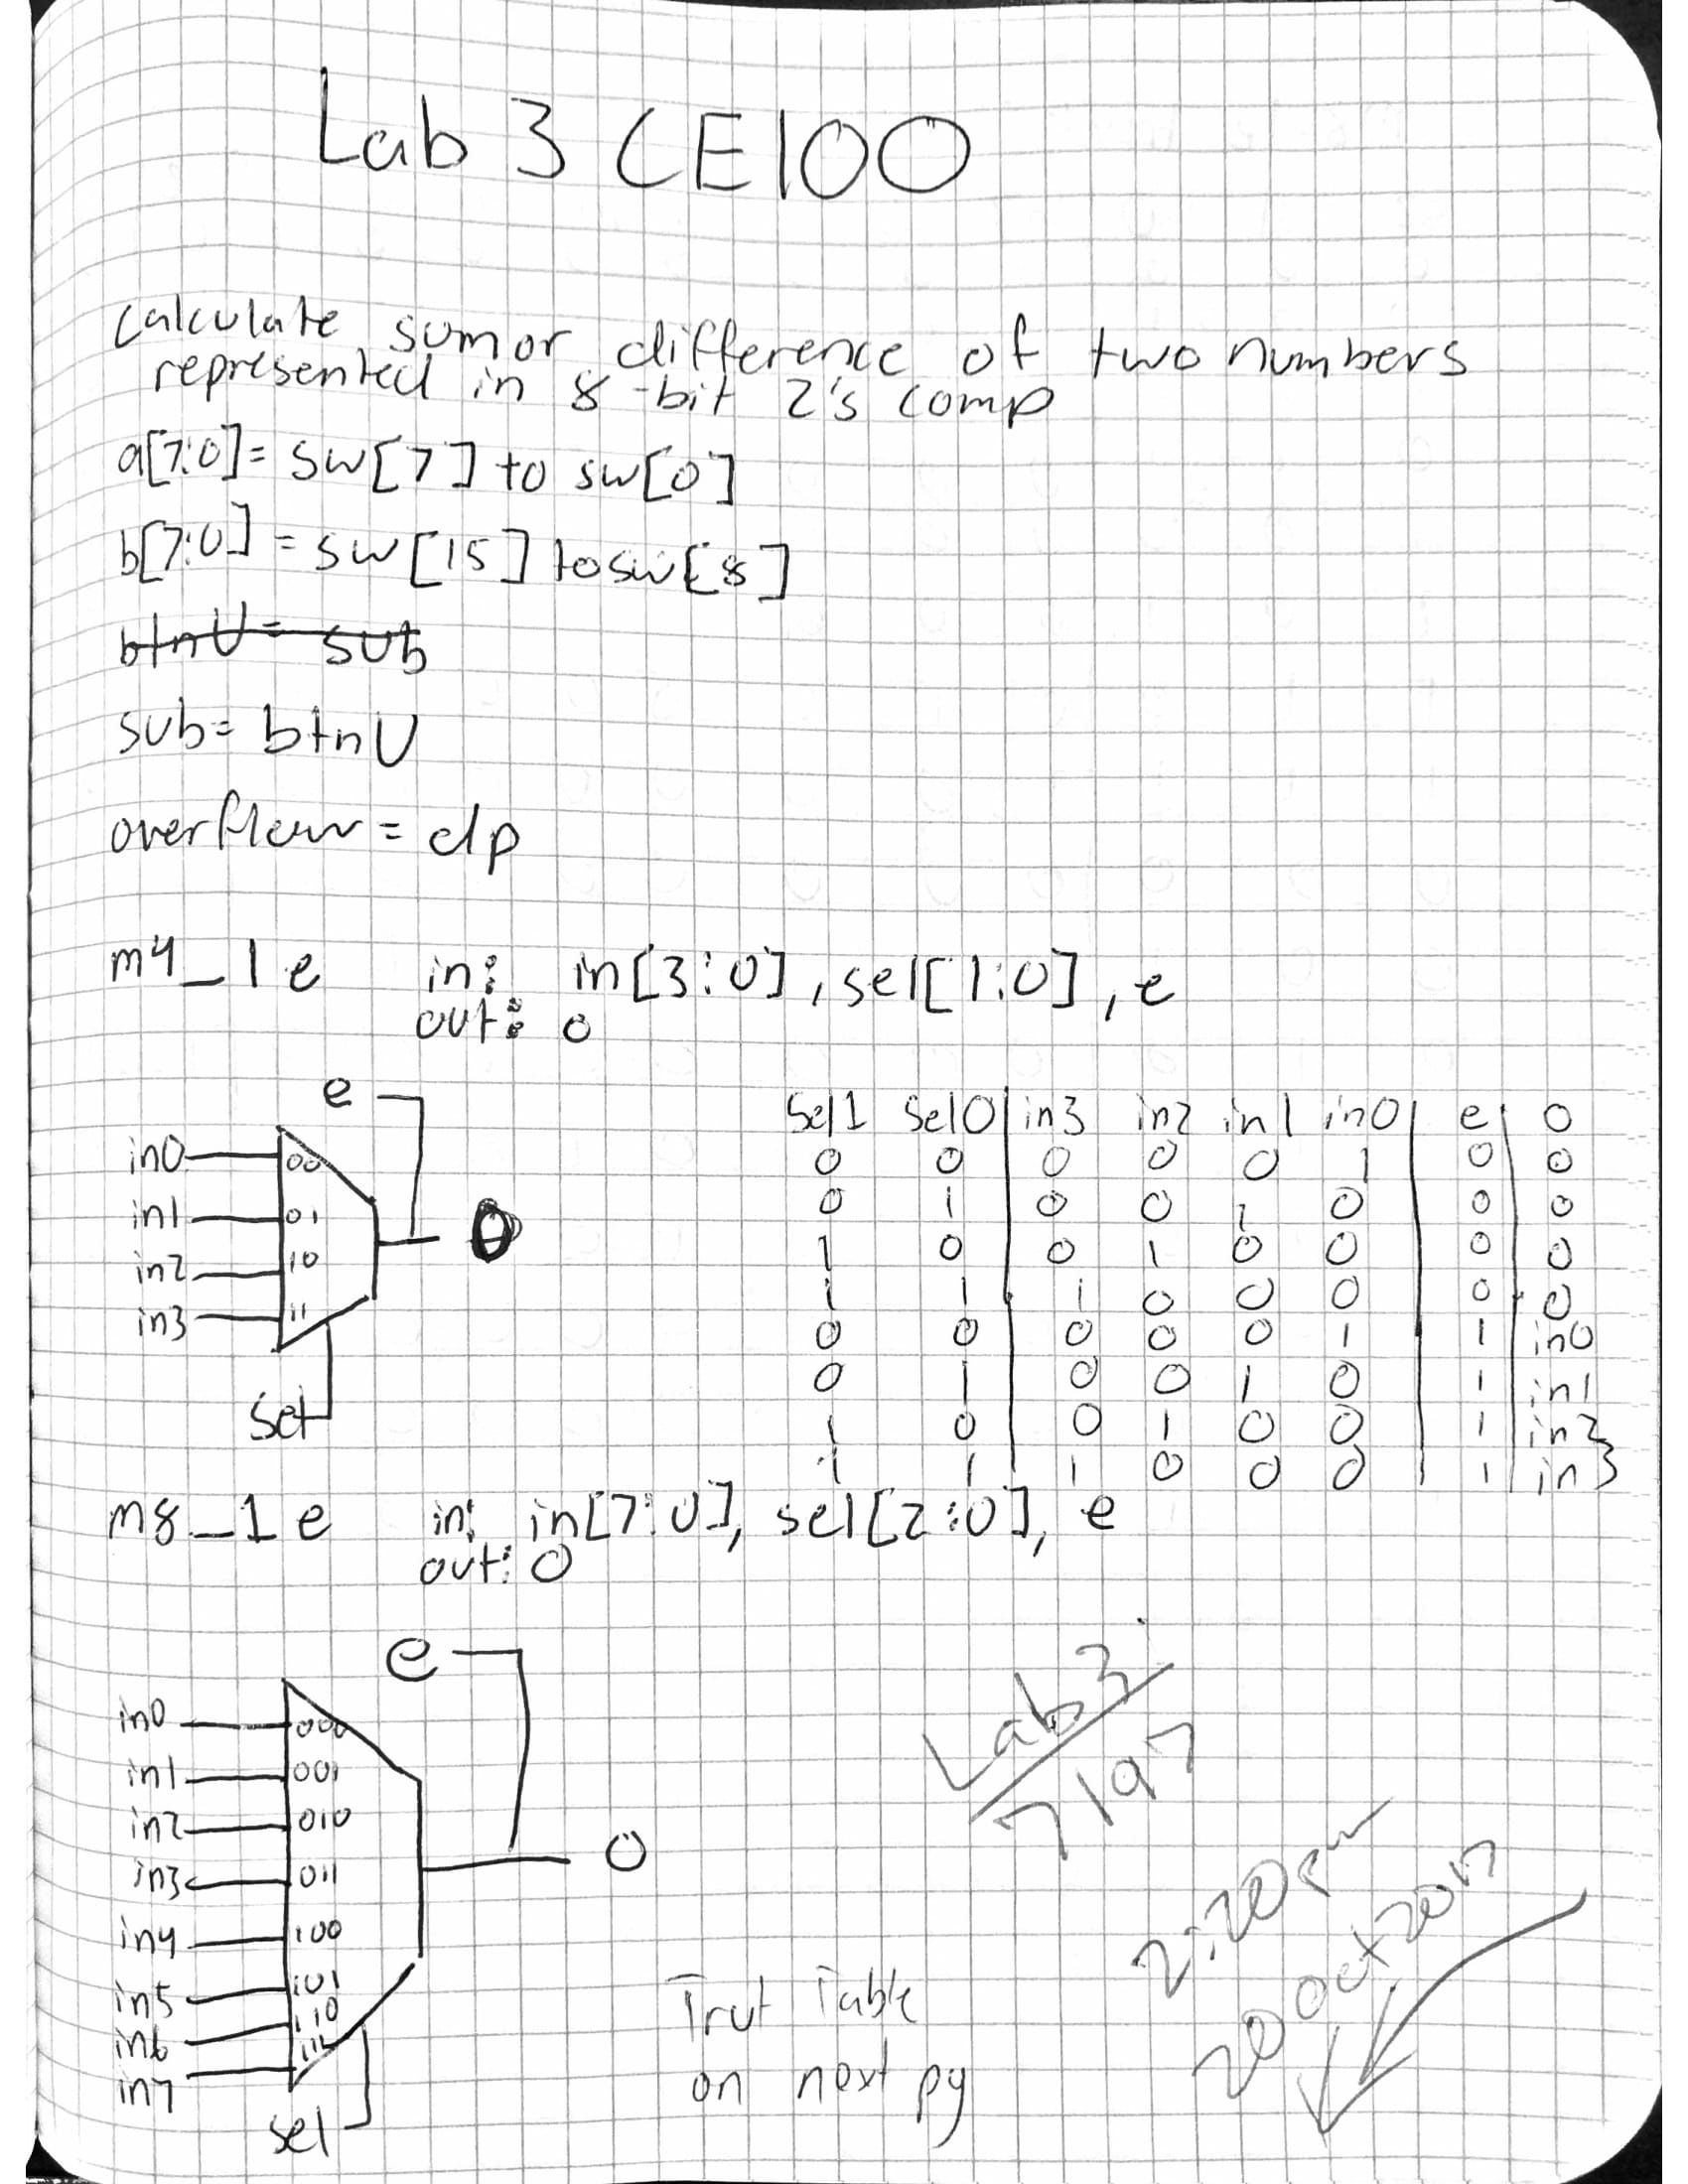 Lab 3 CE100
calculate sum or difference of two numbers
represented in 8-bit 2's comp
a[7:0]= sw[7] to sw[0]
b[7:0] = sw[15] to sw[8]
btnU= sub
sub= btnU
overflow = dp
m4_1e in: in[3:0], sel[1:0], e
out: o
e
in0 00
in1 01
in2 10
in3 11
o
sel
sel1 sel0 in3 in2 in1 in0 e o
0 0 0 0 0 1 0 0
0 1 0 0 1 0 0 0
1 0 0 1 0 0 0 0
1 1 1 0 0 0 0 0
0 0 0 0 0 1 1 in0
0 1 0 0 1 0 1 in1
1 0 0 1 0 0 1 in2
1 1 1 0 0 0 1 in3
m8_1e in: in[7:0], sel[2:0], e
out: o
e
in0 000
in1 001
in2 010
in3 011
in4 100
in5 101
in6 110
in7 111
o
sel
Trut Table
on next pg
Lab 3
7197
2:20pm
20 Oct 2017